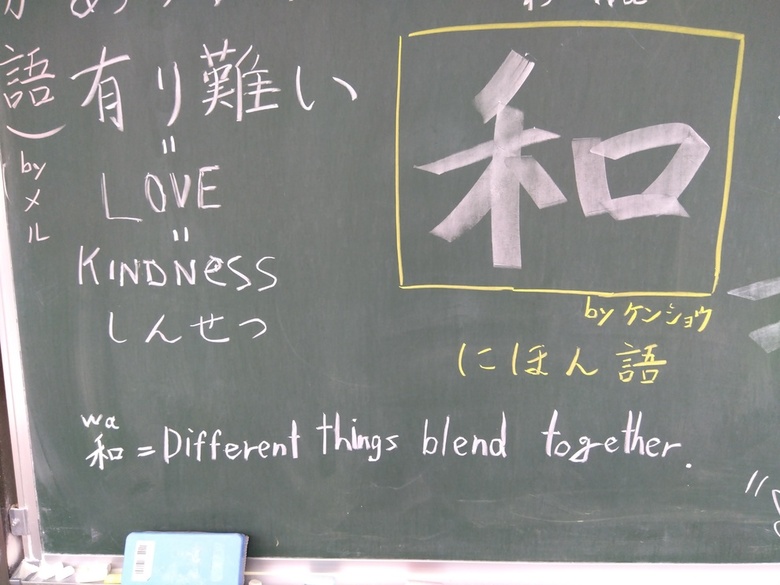 語)
by メル
有り難い
=
LOVE
=
KINDNeSS
しんせつ
和
by ケンショウ
にほん語
wa
和 = Different things blend together.